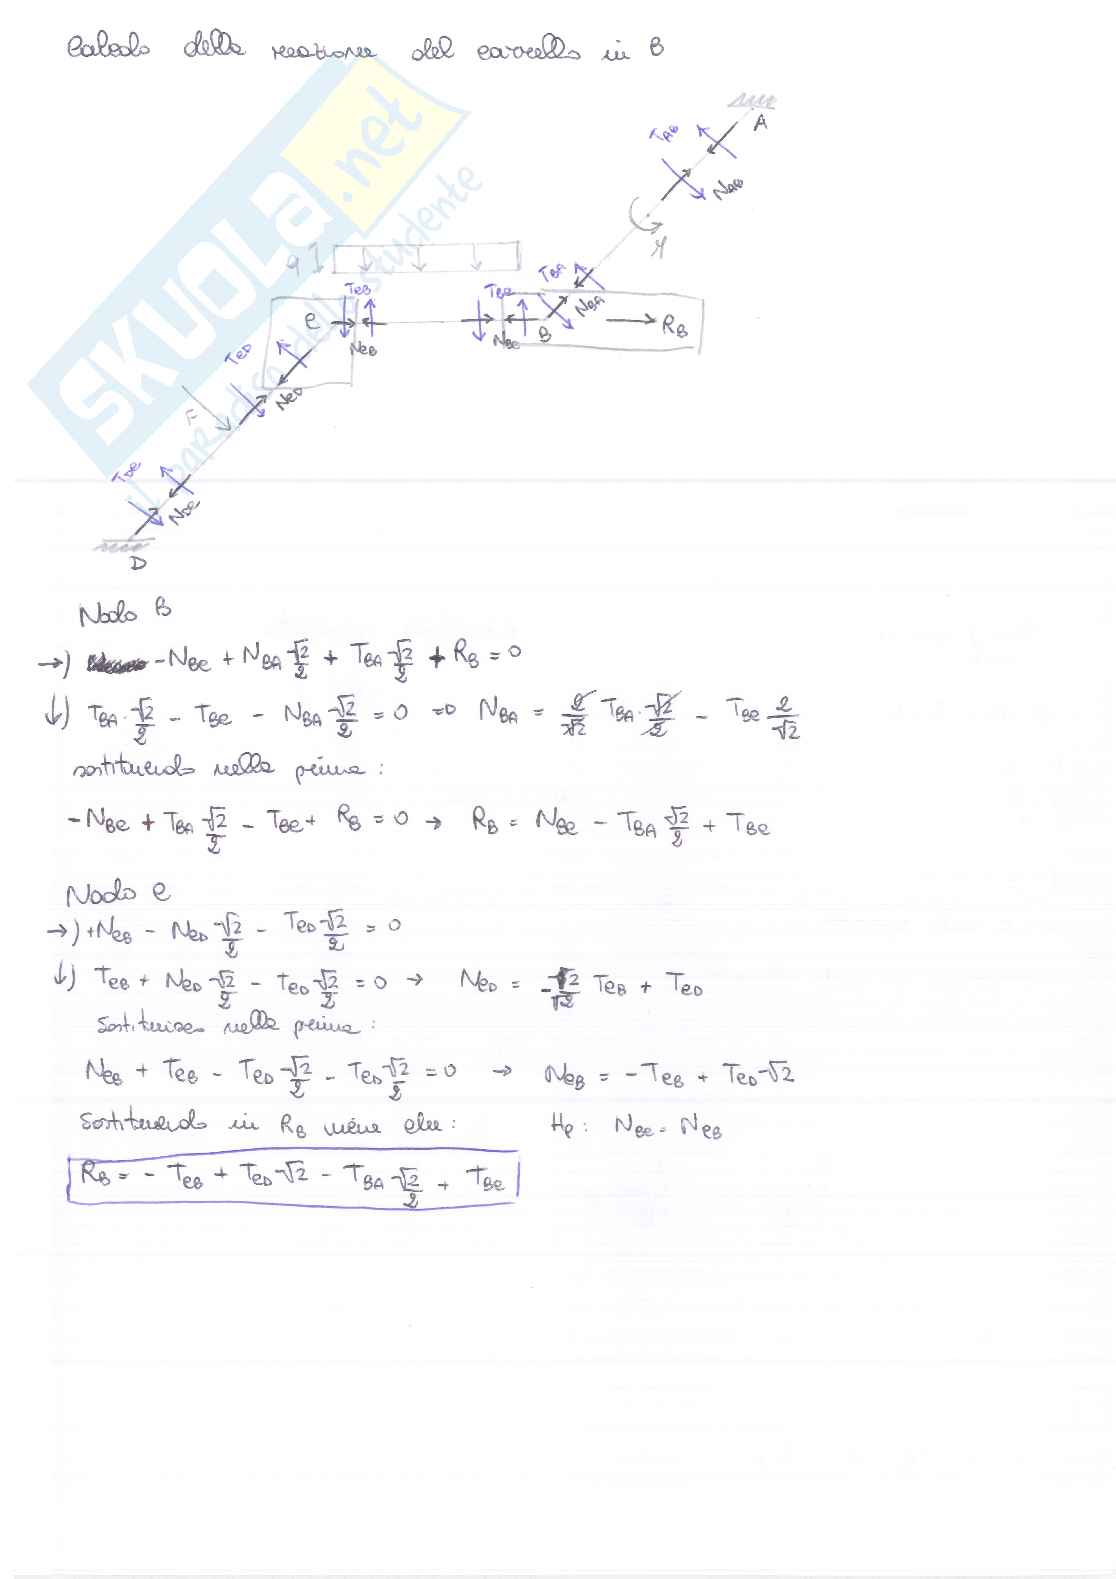 Calcolo della reazione del carrello in B
A
T_AB
N_AB
M
q
T_BA
N_BA
T_CB
T_BC
C
N_CB
N_BC
B
R_B
T_CD
N_CD
F
T_DC
N_DC
D
SKUOLA.net
paradiso dello studente
Nodo B
→) -N_BC + N_BA √2/2 + T_BA √2/2 + R_B = 0
↓) T_BA · √2/2 - T_BC - N_BA √2/2 = 0 => N_BA = 2/√2 T_BA · √2/2 - T_BC 2/√2
sostituendo nella prima:
-N_BC + T_BA √2/2 - T_BC + R_B = 0 → R_B = N_BC - T_BA √2/2 + T_BC
Nodo C
→) +N_CB - N_CD √2/2 - T_CD √2/2 = 0
↓) T_CB + N_CD √2/2 - T_CD √2/2 = 0 → N_CD = -2/√2 T_CB + T_CD
Sostituisco nella prima:
N_CB + T_CB - T_CD √2/2 - T_CD √2/2 = 0 → N_CB = -T_CB + T_CD √2
Sostituendo in R_B viene che: Hp: N_BC = N_CB
R_B = - T_CB + T_CD √2 - T_BA √2/2 + T_BC